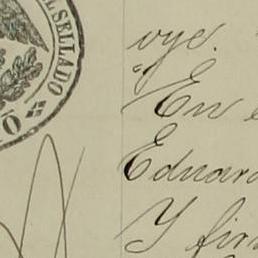 L SELLADO
oye.
"En
Eduar
Y fir